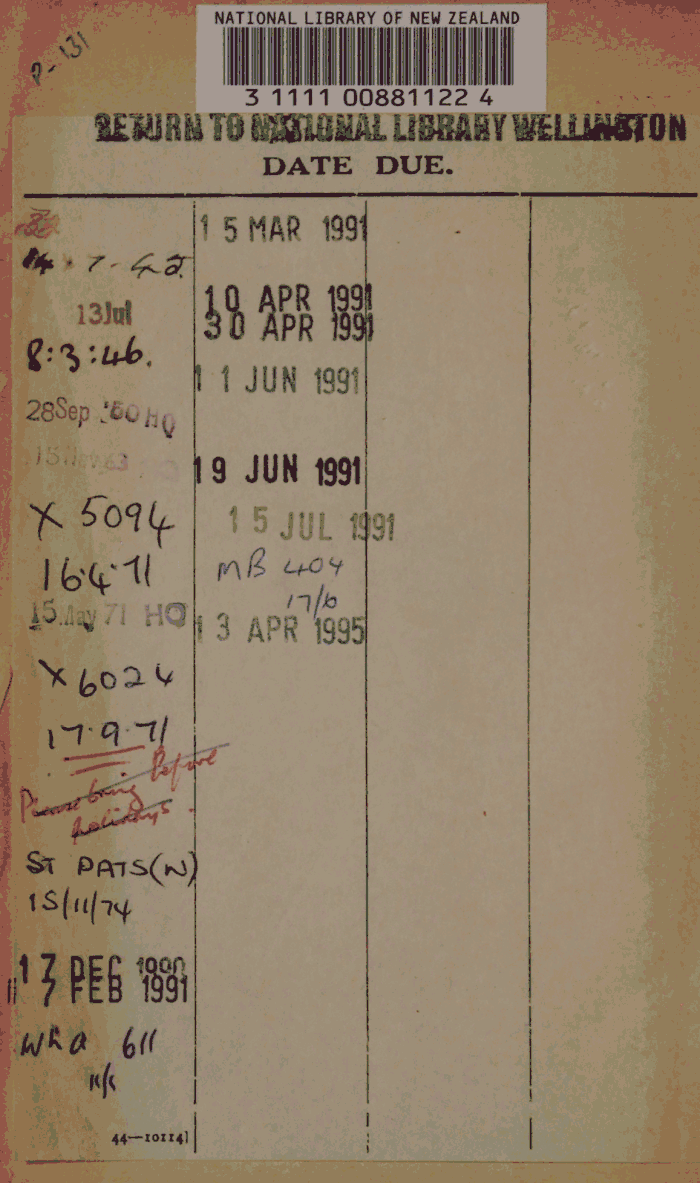 P-131
NATIONAL LIBRARY OF NEW ZEALAND
3 1111 00881122 4
RETURN TO NATIONAL LIBRARY WELLINGTON
DATE DUE.
14.7.42.
13 Jul
8:3:46.
28 Sep '60 HQ
15 Nov 63
X 5094
16.4.71
15 May 71 HQ
X 6024
17.9.71
Please bring Before
holidays.
ST PATS(W)
15/11/74
17 DEC 1990
7 FEB 1991
Wha 611
15 MAR 1991
10 APR 1991
30 APR 1991
11 JUN 1991
19 JUN 1991
15 JUL 1991
MB 404
17/6
13 APR 1995
44—10114]